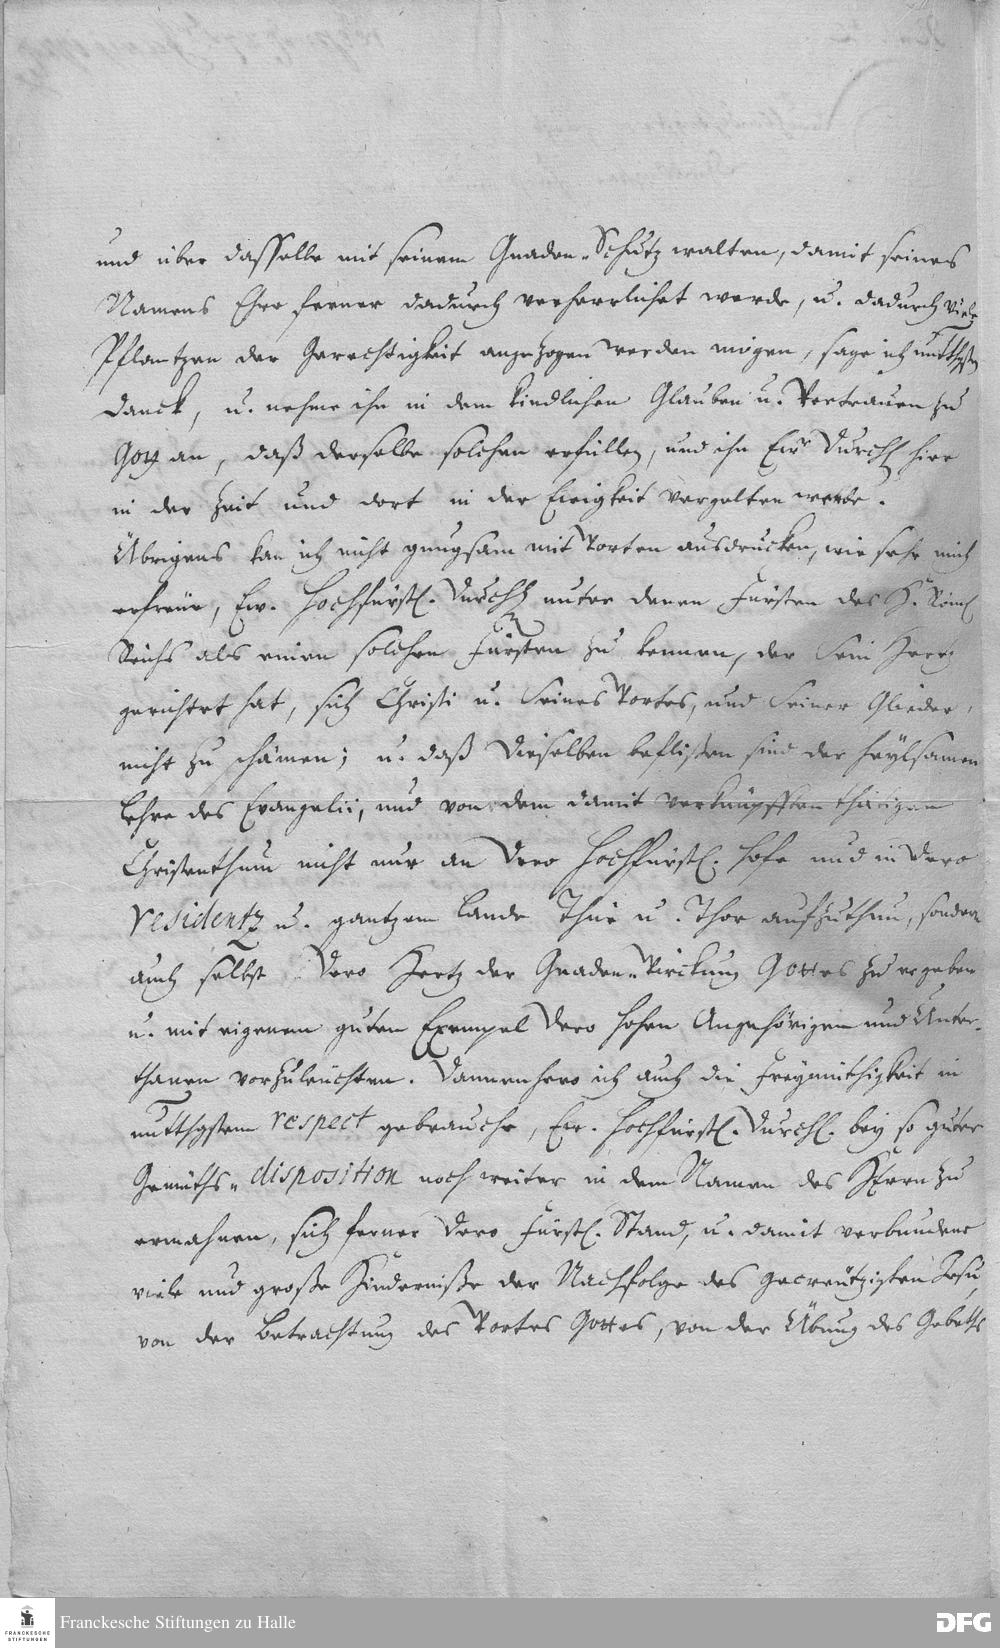 und über dasselbe mit seinem Gnaden-Schutz walten, damit seines
Namens Ehre ferner dadurch verherrlichet werde, u. dadurch viele
Pflantzen der Gerechtigkeit angezogen werden mögen, sage ich untthgsten
Danck, u. nehme ihn in dem kindlichen Glauben u. Vertrauen zu
Gott an, daß derselbe solchen erfüllen, und ihn Ewr Durchl hier
in der Zeit und dort in der Ewigkeit vergelten werde.
Übrigens kan ich nicht gnugsam mit Worten ausdrucken, wie sehr mich
erfreüe, Ew. Hochfürstl. Durchl. unter denen Fürsten des H. Röm.
Reichs als einen solchen Fürsten zu kennen, der Sein Hertz
gerichtet hat, sich Christi u. Seines Wortes, und Seiner Glieder,
nicht zu schämen; u. daß Dieselben beflißen sind der heylsamen
Lehre des Evangelii, und von dem damit verknüpfften thätigen
Christenthum nicht nur an Dero Hochfürstl. Hofe und in Dero
residentz u. gantzem Lande Thür u. Thor aufzuthun, sondern
auch selbst Dero Hertz der Gnaden-Wirckung Gottes zu ergeben
u. mit eigenem guten Exempel Dero hohen Angehörigen und Unter-
thanen vorzuleuchten. Dannenhero ich auch die Freymüthigkeit in
untthgstem respect gebrauche, Ew. Hochfürstl. Durchl. bey so guter
Gemüths-disposition noch weiter in dem Namen des HErrn zu
ermahnen, sich ferner Dero Fürstl. Stand, u. damit verbundene
viele und große Hinderniße der Nachfolge des gecreutzigten Jesu,
von der Betrachtung des Wortes Gottes, von der Übung des Gebeths
FRANCKESCHE
STIFTUNGEN
Franckesche Stiftungen zu Halle
DFG